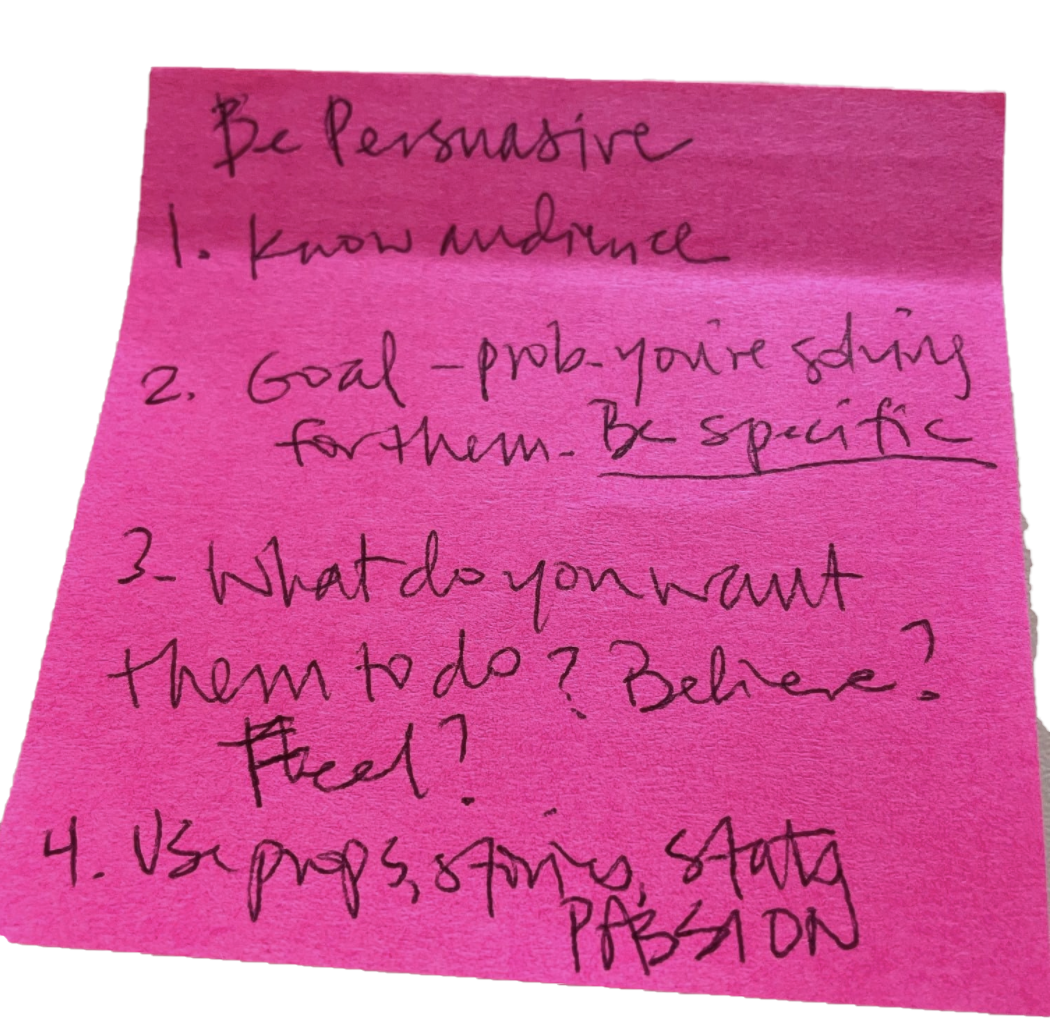 Be Persuasive
1. Know audience
2. Goal - prob. you're solving
for them. Be specific
3. What do you want
them to do? Believe?
Feel?
4. Use props, stories, stats,
PASSION